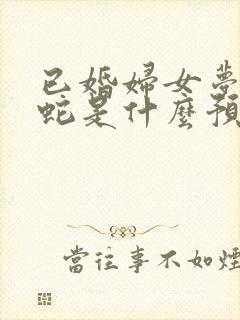 已婚婦女夢
蛇是什麼預
當往事不如煙